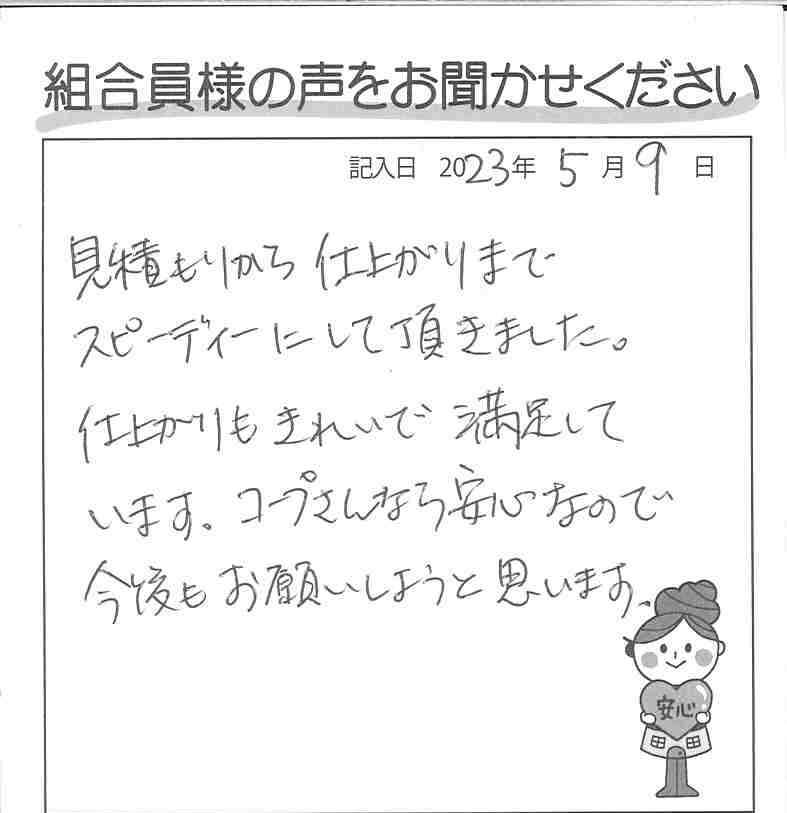 組合員様の声をお聞かせください
記入日 2023年 5月 9日
見積もりから 仕上がりまで
スピーディーにして頂きました。
仕上がりも きれいで 満足して
います。コープさんなら安心なので
今後も お願いしようと思います。
安心